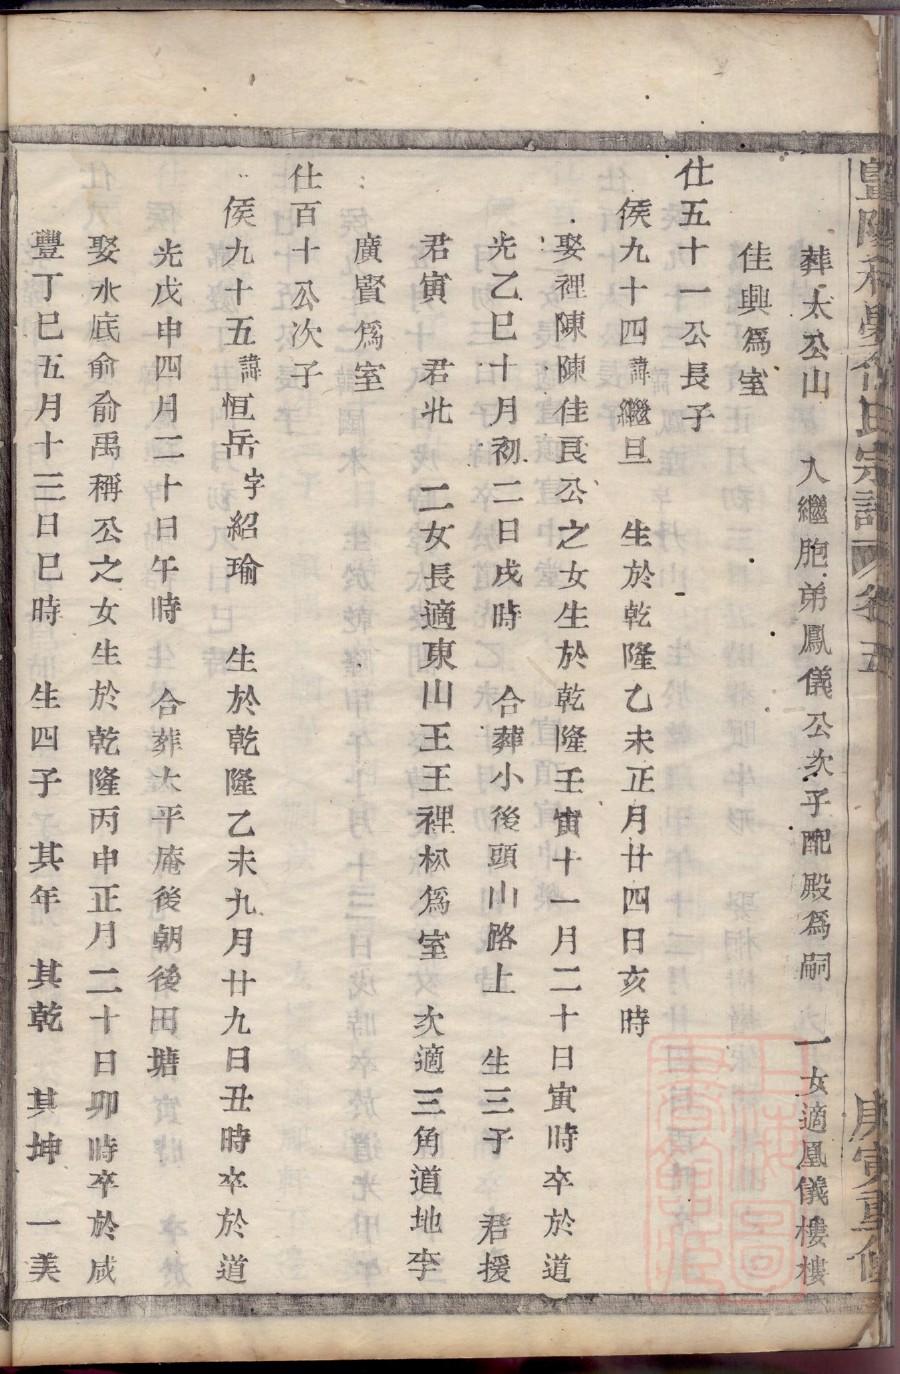 葬太公山　入繼胞弟鳳儀公次子配殿爲嗣　一女適凰儀樓樓
佳興爲室
仕五十一公長子
侯九十四諱繼旦　生於乾隆乙未正月廿四日亥時
娶裡陳陳佳良公之女生於乾隆壬寅十一月二十日寅時卒於道
光乙巳十月初二日戌時　合葬小後頭山路上　生三子　君援
君寅　君北　二女長適東山王王裡松爲室　次適三角道地李
廣賢爲室
仕百十公次子
侯九十五諱恒岳字紹瑜　生於乾隆乙未九月廿九日丑時卒於道
光戊申四月二十日午時　合葬太平庵後朝後田塘
娶水底俞俞禹稱公之女生於乾隆丙申正月二十日卯時卒於咸
豐丁巳五月十三日巳時　生四子　其年　其乾　其坤　一美